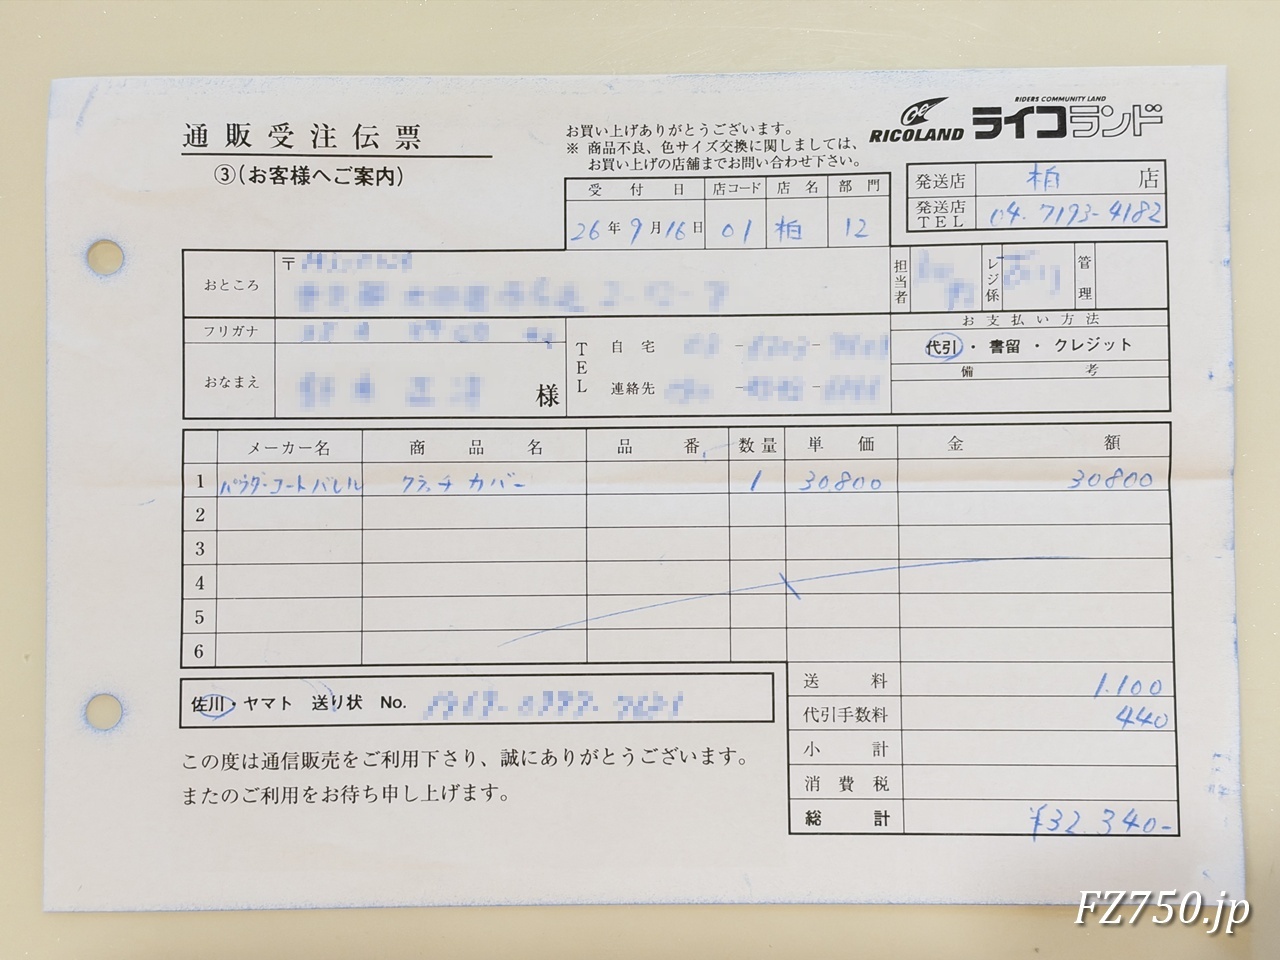 通販受注伝票
③(お客様へご案内)
お買い上げありがとうございます。
※ 商品不良、色サイズ交換に関しましては、
お買い上げの店舗までお問い合わせ下さい。
RICOLAND
RIDERS COMMUNITY LAND
ライコランド
発送店 柏 店
発送店TEL 04-7193-4182
受付日 店コード 店名 部門
26年9月16日 01 柏 12
おところ 〒
担当者 レジ係 管理
フリガナ
おなまえ 様
TEL 自宅 - -
連絡先 - -
お支払い方法
代引・書留・クレジット
備考
メーカー名 商品名 品番 数量 単価 金額
1 パウダーコートバレル クラッチカバー 1 30800 30800
2
3
4
5
6
佐川・ヤマト 送り状 No.
送料 1,100
代引手数料 440
小計
消費税
総計 ¥32,340-
この度は通信販売をご利用下さり、誠にありがとうございます。
またのご利用をお待ち申し上げます。
FZ750.jp